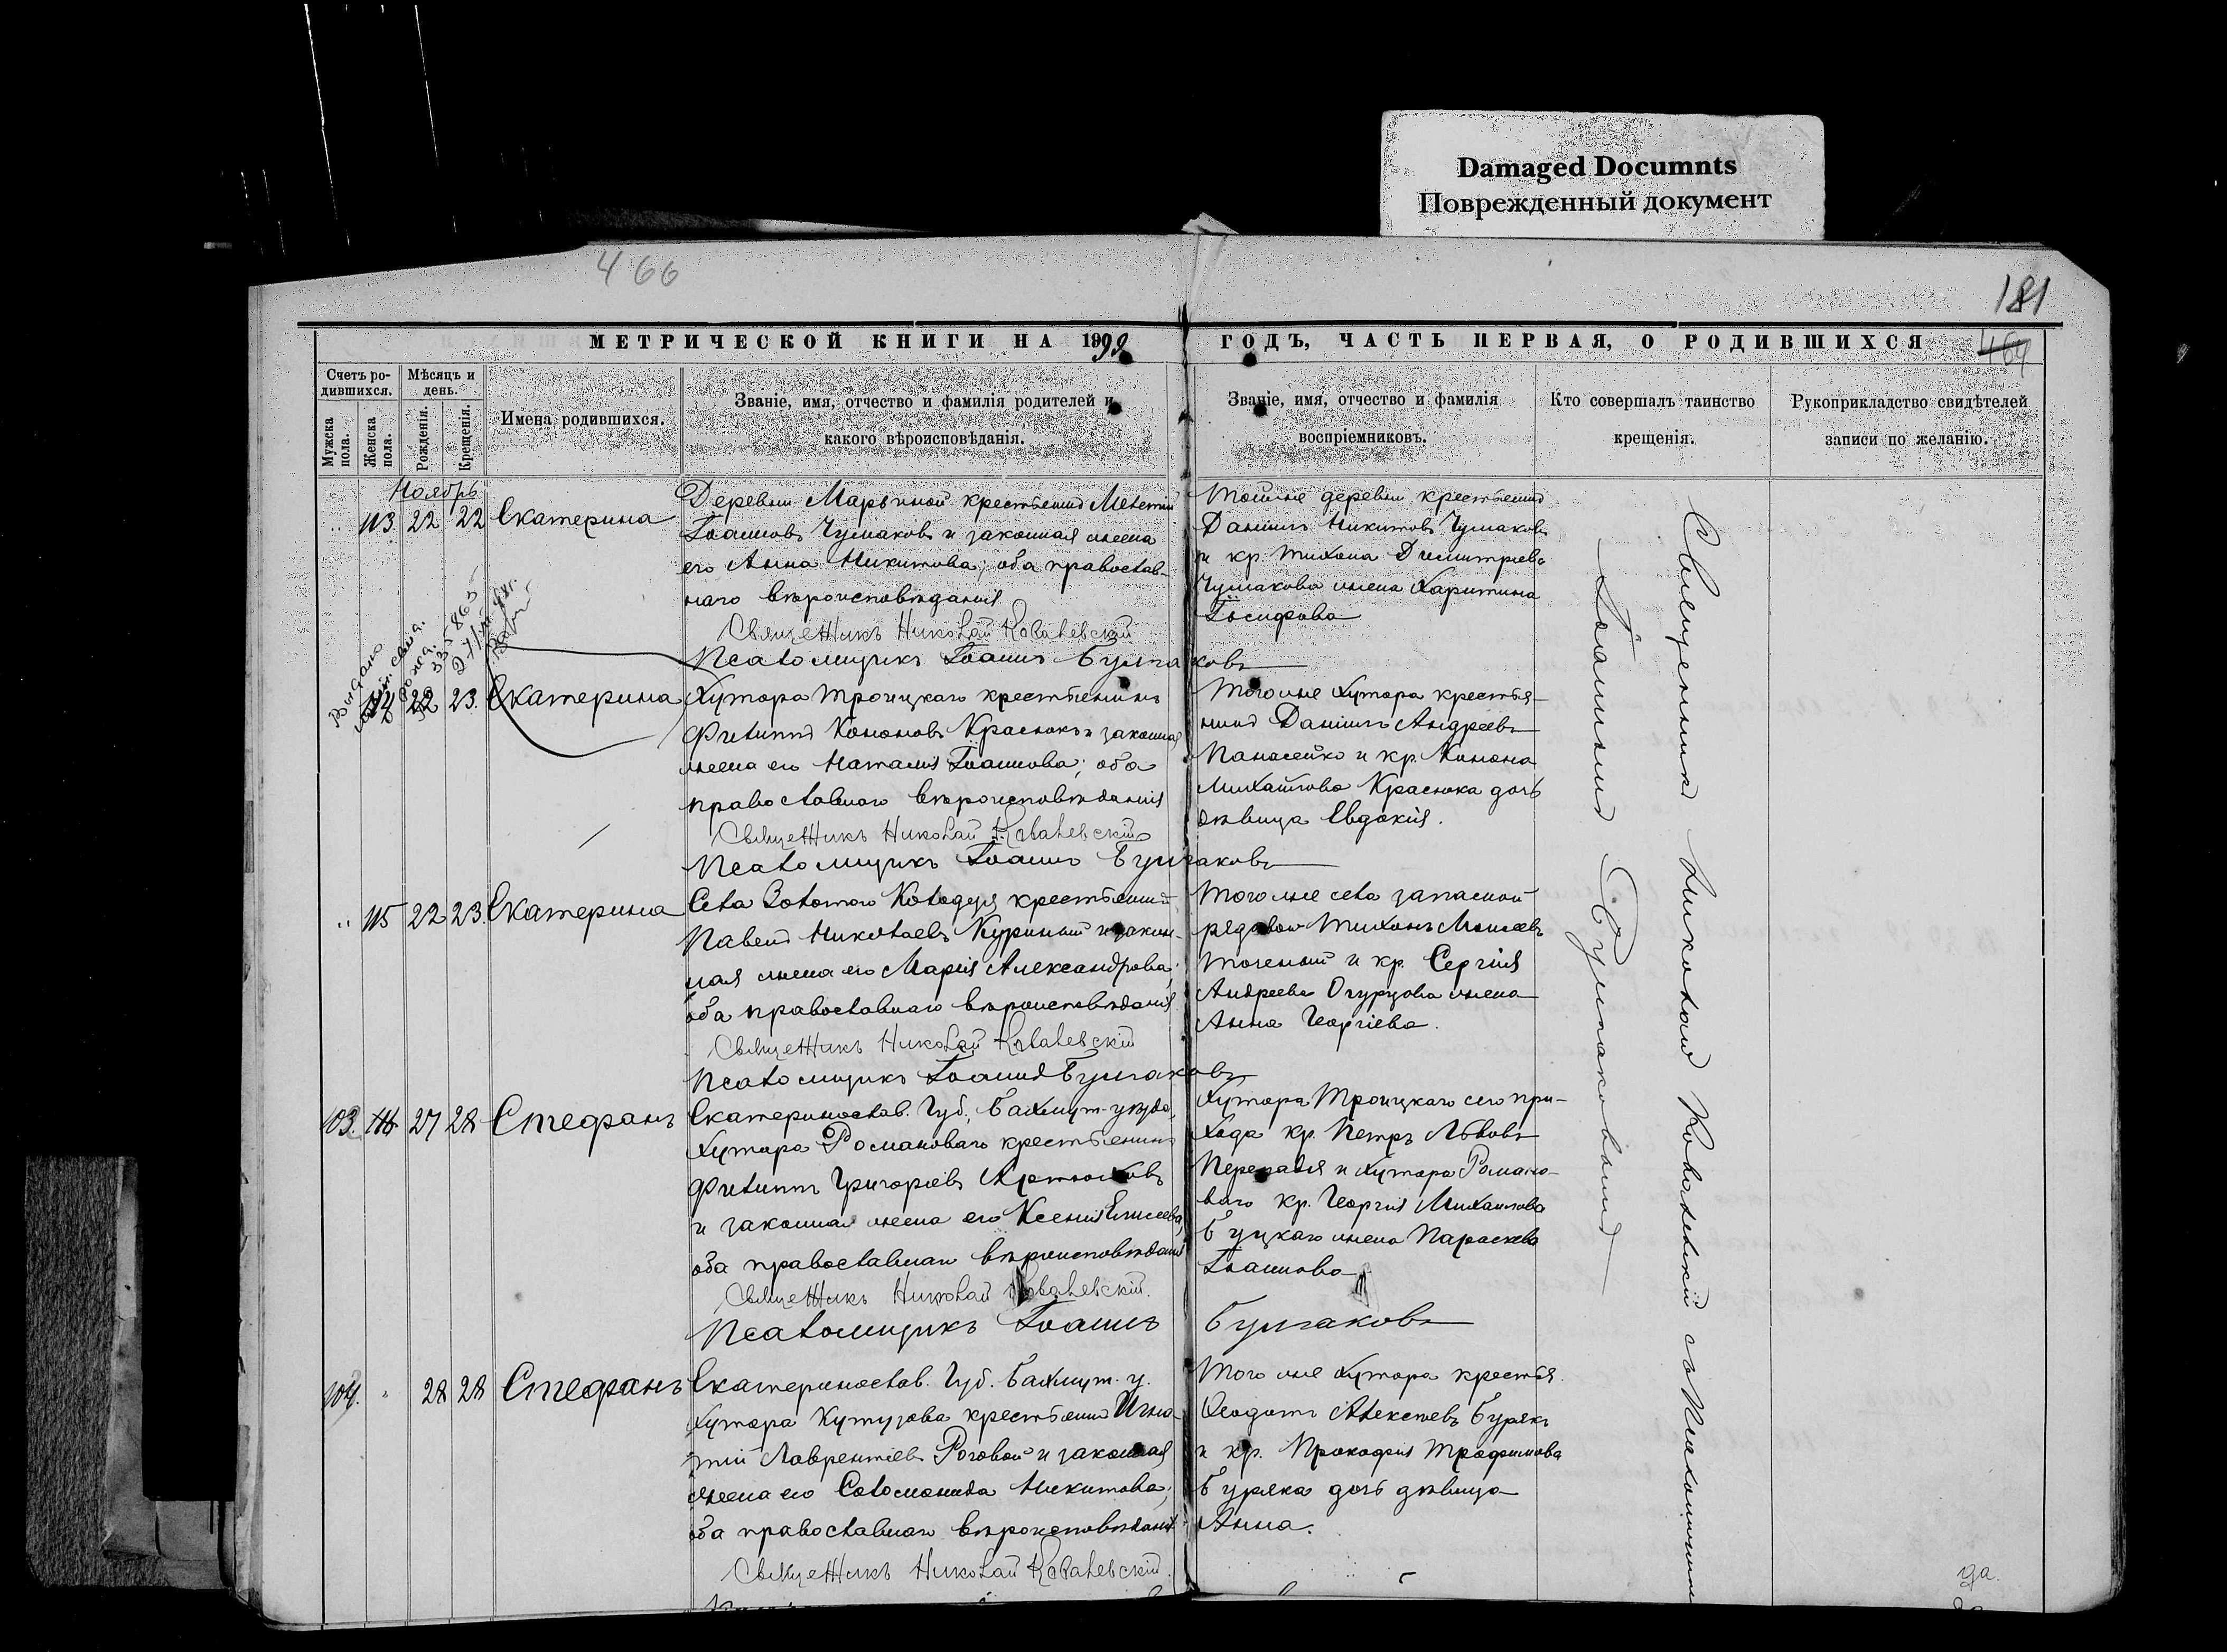 Damaged Documnts
Поврежденный документ
466
181
МЕТРИЧЕСКОЙ КНИГИ НА 1899
ГОДЪ, ЧАСТЬ ПЕРВАЯ, О РОДИВШИХСЯ
Счетъ ро-
дившихся.
Мужска
пола.
Женска
пола.
Мѣсяцъ и
день.
Рожденія.
Крещенія.
Имена родившихся.
Званіе, имя, отчество и фамилія родителей и
какого вѣроисповѣданія.
Званіе, имя, отчество и фамилія
воспріемниковъ.
Кто совершалъ таинство
крещенія.
Рукоприкладство свидѣтелей
записи по желанію.
Ноябрь
113. 22 22 Екатерина
Деревни Марьиной крестьянинъ Мелетій
Іоанновъ Чумаковъ и законная жена
его Анна Никитова; оба православ-
наго вѣроисповѣданія
Священникъ Николай Ковалевскій
Псаломщикъ Іоаннъ Булгаковъ
Тойже деревни крестьянинъ
Даніилъ Никитовъ Чумаковъ
и кр. Тихона Димитріева
Чумакова жена Харитина
Іосифова
114 22 23. Екатерина
Хутора Троицкаго крестьянинъ
Филиппъ Кононовъ Краснокъ и законная
жена его Наталія Іоаннова; оба
православнаго вѣроисповѣданія
Священникъ Николай Ковалевскій
Псаломщикъ Іоаннъ Булгаковъ
Тогоже хутора крестья-
нинъ Даніилъ Андреевъ
Панасейко и кр. Конона
Михайлова Краснока дочь
дѣвица Евдокія.
115 22 23. Екатерина
Села Золотого Колодезя крестьянинъ
Павелъ Николаевъ Куриный и закон-
ная жена его Марія Александрова;
оба православнаго вѣроисповѣданія
Священникъ Николай Ковалевскій
Псаломщикъ Іоаннъ Булгаковъ
Тогоже села запасной
рядовой Тихонъ Моисеевъ
и кр. Сергія
Андреева Огурцова жена
Анна Георгіева.
103. 27 28 Стефанъ
Екатеринослав. Губ. Бахмут. уѣзда,
хутора Романоваго крестьянинъ
Филиппъ Григоріевъ
и законная жена его Ксенія Елисеева,
оба православнаго вѣроисповѣданія
Священникъ Николай Ковалевскій.
Псаломщикъ Іоаннъ Булгаковъ
Хутора Троицкаго сего при-
хода кр. Петръ Львовъ
и хутора Романо-
ваго кр. Георгія Михаилова
Буцкаго жена Параскева
Іоаннова
104. 28 28 Стефанъ
Екатеринослав. Губ. Бахмут. у.
хутора Кутузова крестьянинъ Игна-
тій Лаврентіевъ Роговой и законная
жена его Соломонида Никитова,
оба православнаго вѣроисповѣданія
Священникъ Николай Ковалевскій.
Того же хутора крестья.
Ѳеодотъ Алексѣевъ Бурякъ
и кр. Прокофія Трофимова
Буряка дочь дѣвица
Анна.
Священникъ Николай Ковалевскій съ Псаломщикомъ
Іоанномъ Булгаковымъ